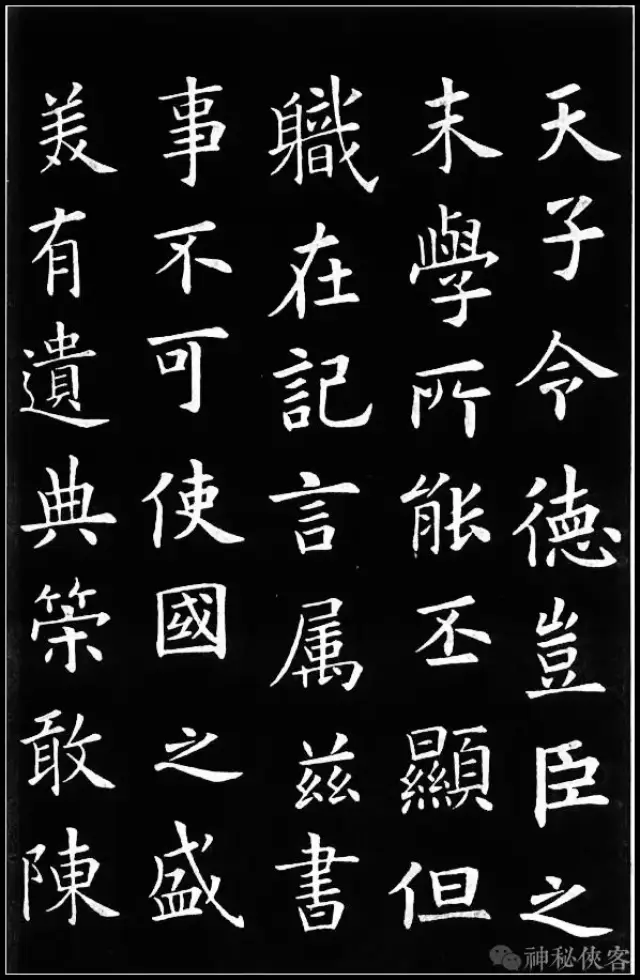 天子令德豈臣之
末學所能丕顯但
職在記言属茲書
事不可使國之盛
美有遺典䇿敢陳
神秘俠客